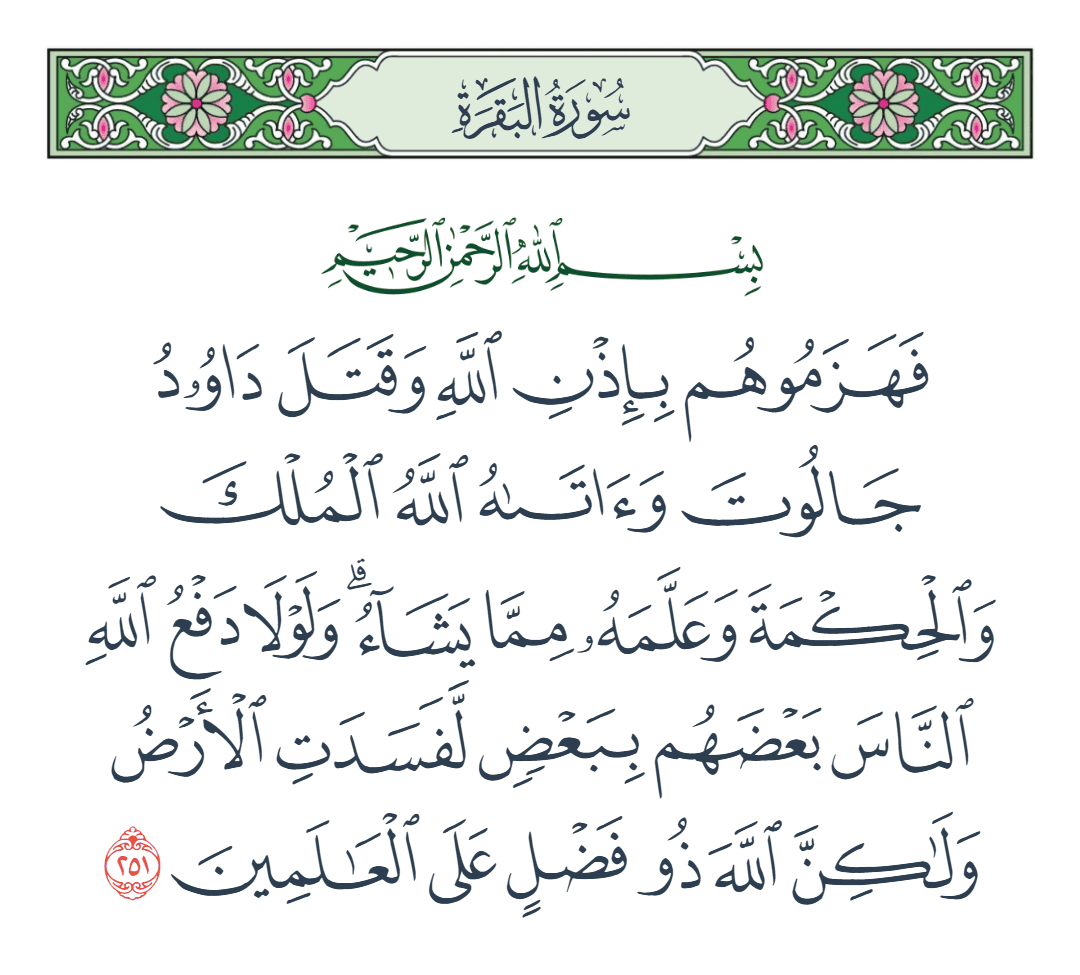 سُورَةُ البَقَرَةِ
بِسْمِ ٱللَّهِ ٱلرَّحْمَٰنِ ٱلرَّحِيمِ
فَهَزَمُوهُم بِإِذْنِ ٱللَّهِ وَقَتَلَ دَاوُۥدُ
جَالُوتَ وَءَاتَىٰهُ ٱللَّهُ ٱلْمُلْكَ
وَٱلْحِكْمَةَ وَعَلَّمَهُۥ مِمَّا يَشَآءُ ۗ وَلَوْلَا دَفْعُ ٱللَّهِ
ٱلنَّاسَ بَعْضَهُم بِبَعْضٍ لَّفَسَدَتِ ٱلْأَرْضُ
وَلَٰكِنَّ ٱللَّهَ ذُو فَضْلٍ عَلَى ٱلْعَٰلَمِينَ ٢٥١